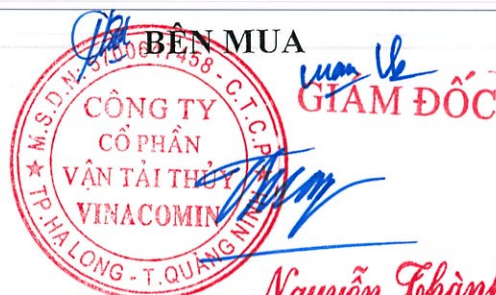 BÊN MUA
GIÁM ĐỐC
M.S.D.N: 5700647458 - C.T.C.P
CÔNG TY
CỔ PHẦN
VẬN TẢI THỦY
VINACOMIN
TP. HẠ LONG - T. QUẢNG NINH
Nguyễn Thành